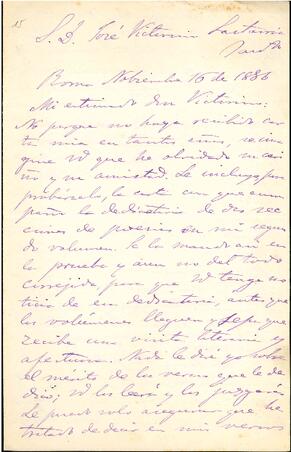 S. D. José Victorino Lastarria
Roma Nobiembre 16 de 1886
Mi estimado don Victorino:
No porque no haya recibido car
ta mia en tantos años, se ima
gine U que he olvidado su cari
ño y su amistad. Le incluyo, para
probárselo, la carta con que acom
paño la dedicatoria de dos sec
ciones de poesías en mi segun
do volumen. Se la mandan en
la prueba y aun no del todo
corregida para que U tenga no
ticia de esa dedicatoria, antes que
los volúmenes lleguen y sepa que
recibe una visita literaria y
afectuosa. Nada le diré yo sobre
el mérito de los versos que le de
dico; U los leerá y los juzgará.
Le puedo solo asegurar que he
tratado de decir en mis versos